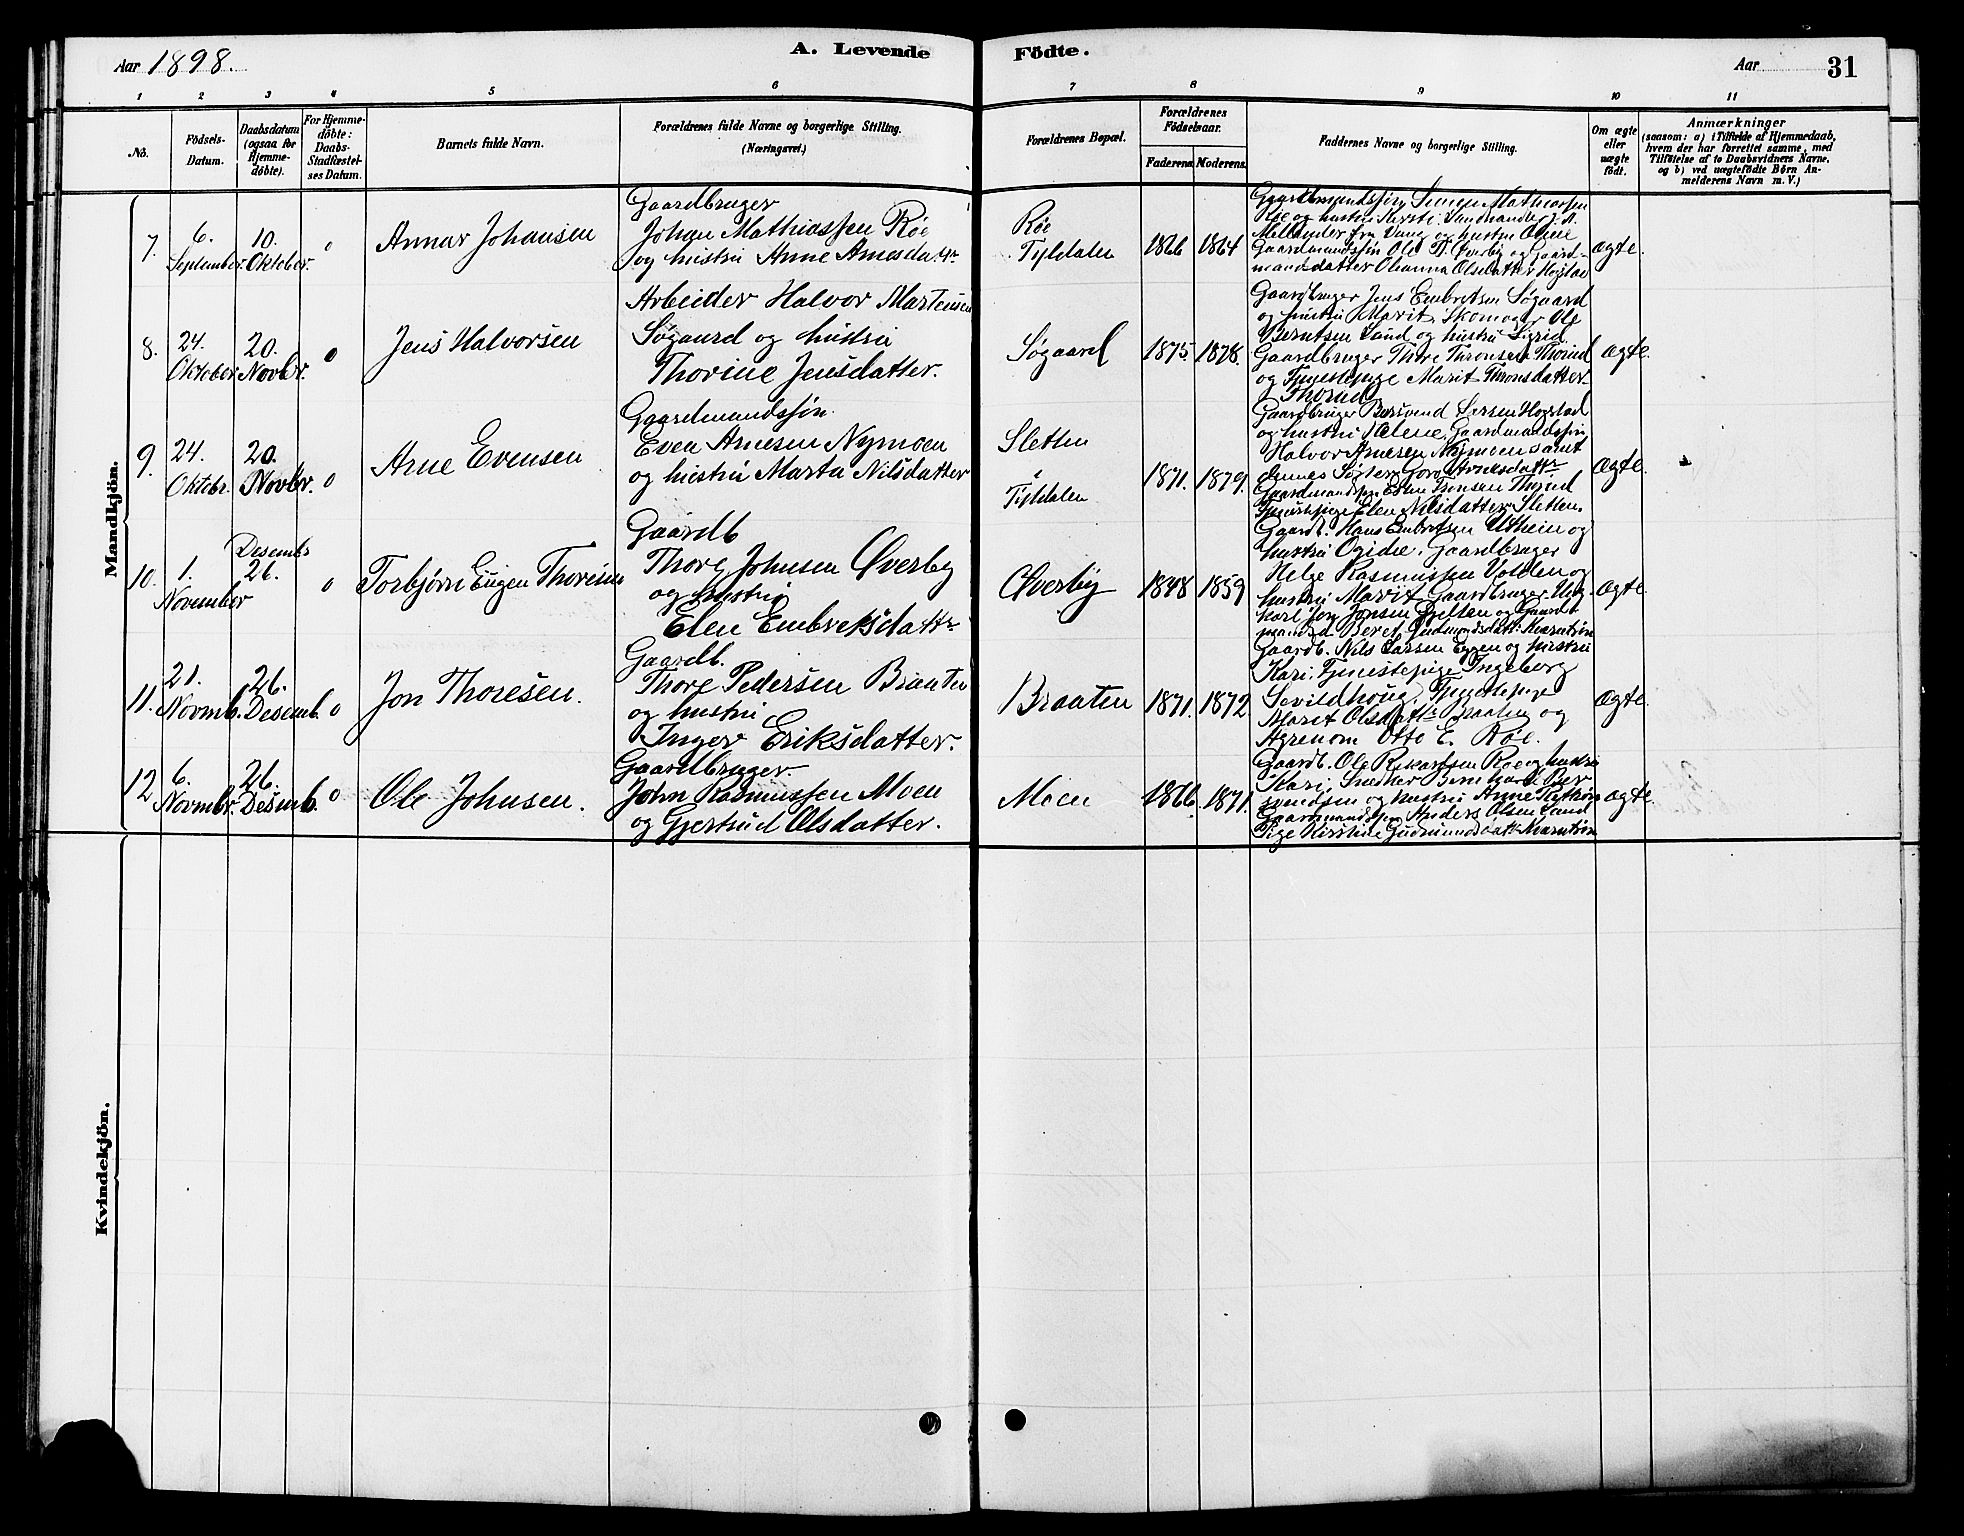 Aar 1898.
A. Levende
Födte.
Aar
31
1 2 3 4 5 6 7 8 9 10 11
No.
Födsels-
Datum.
Daabsdatum
(ogsaa for
Hjemme-
döbte).
For Hjemme-
döbte:
Daabs-
Stadfæstel-
ses Datum.
Barnets fulde Navn.
Forældrenes fulde Navne og borgerlige Stilling.
(Næringsvei.)
Forældrenes Bopæl.
Forældrenes
Födselsaar.
Faderens. Moderens.
Faddernes Navne og borgerlige Stilling.
Om ægte
eller
uægte
födt.
Anmærkninger
(saasom: a) i Tilfælde af Hjemmedaab,
hvem der har forrettet samme, med
Tilföielse af to Daabsvidners Navne,
og b) ved uægtefödte Börn An-
melderens Navn m. V.)
Mandkjön.
7.
6.
September.
10.
Oktober.
0
Annar Johansen
Gaardbruger
Johan Mathiassen Røe
og hustru Anne Arnesdatr
Røe
Tyldalen
1866 1864
Gaardmandssøn Simen Mathiassen
Røe og hustru Kersti,
fra Vang og hustru Oline
Gaardmandssøn Ole T. Øverby og Gaard-
mandsdatter Olianna Olsdatter Hogstad
ægte.
8.
24.
Oktober
20.
Novbr.
0
Jens Halvorsen
Arbeider Halvor Martensen
Søgaard og hustru
Thorine Jensdatter.
Søgaard
1875. 1878.
Gaardbruger Jens Embretsen Søgaard
og hustru Marit, Skomager Ole
Berntsen Sund og hustru Sigrid
Gaardbruger Thore Thronsen Thorud
og Tjenestepige Marit Thronsdatter
Thorud
ægte.
9.
24.
Oktobr.
20.
Novbr.
0
Arne Evensen
Gaardmandssøn.
Even Arnesen Nymoen
og hustru Marta Nilsdatter
Sletten
Tyldalen
1871. 1879.
Gaardbruger Bersvend Hogstad
og hustru Helene, Gaardmandssøn
Halvor Arnesen Nymoen samt
dennes Søster Goro Arnesdattr
Gaardmandssøn Esten Tronsen Thorud
Tjenestepige Elen Nilsdatter Sletten.
ægte.
10.
1.
November
Desembr
26.
0
Torbjørn Eugen Thoresen
Gaardb
Thore Johnsen Øverby
og hustru
Elen Embreksdattr
Øverby
1848 1859
Gaardb. Hans Embretsen Utheim og
hustru Gaardbruger
Helge Rasmussen Volden og
hustru Marit, Gaardbruger Ung-
karl Jon Jonsen og Gaardb
Beret Gudmundsdatr.
ægte.
11.
21.
Novmb.
26.
Desemb.
0
Jon Thoresen.
Gaardb.
Thore Pedersen Braaten
og hustru
Inger Eriksdatter.
Braaten
1871. 1872
Gaardb. Nils Larsen Eggen og hustru
Kari; Tjenestepige Ingeborg
Sevildhoug, Tjenestepige
Marit Olsdattr Braaten og
Agronom Otto E. Røe.
ægte.
12
6.
Novmbr.
26.
Desemb.
0
Ole Johnsen.
Gaardbruger.
John Rasmussen Moen
og Gjertrud Olsdatter.
Moen
1866. 1871.
Gaardb. Ole Rikartsen Røe og hustru
Kari; Snedker Bernhard Ber-
svendsen og hustru Anne
Gaardmandssøn Anders Olsen Sund
Pige Kirstine Gudmundsdatr
ægte.
Kvindekjön.